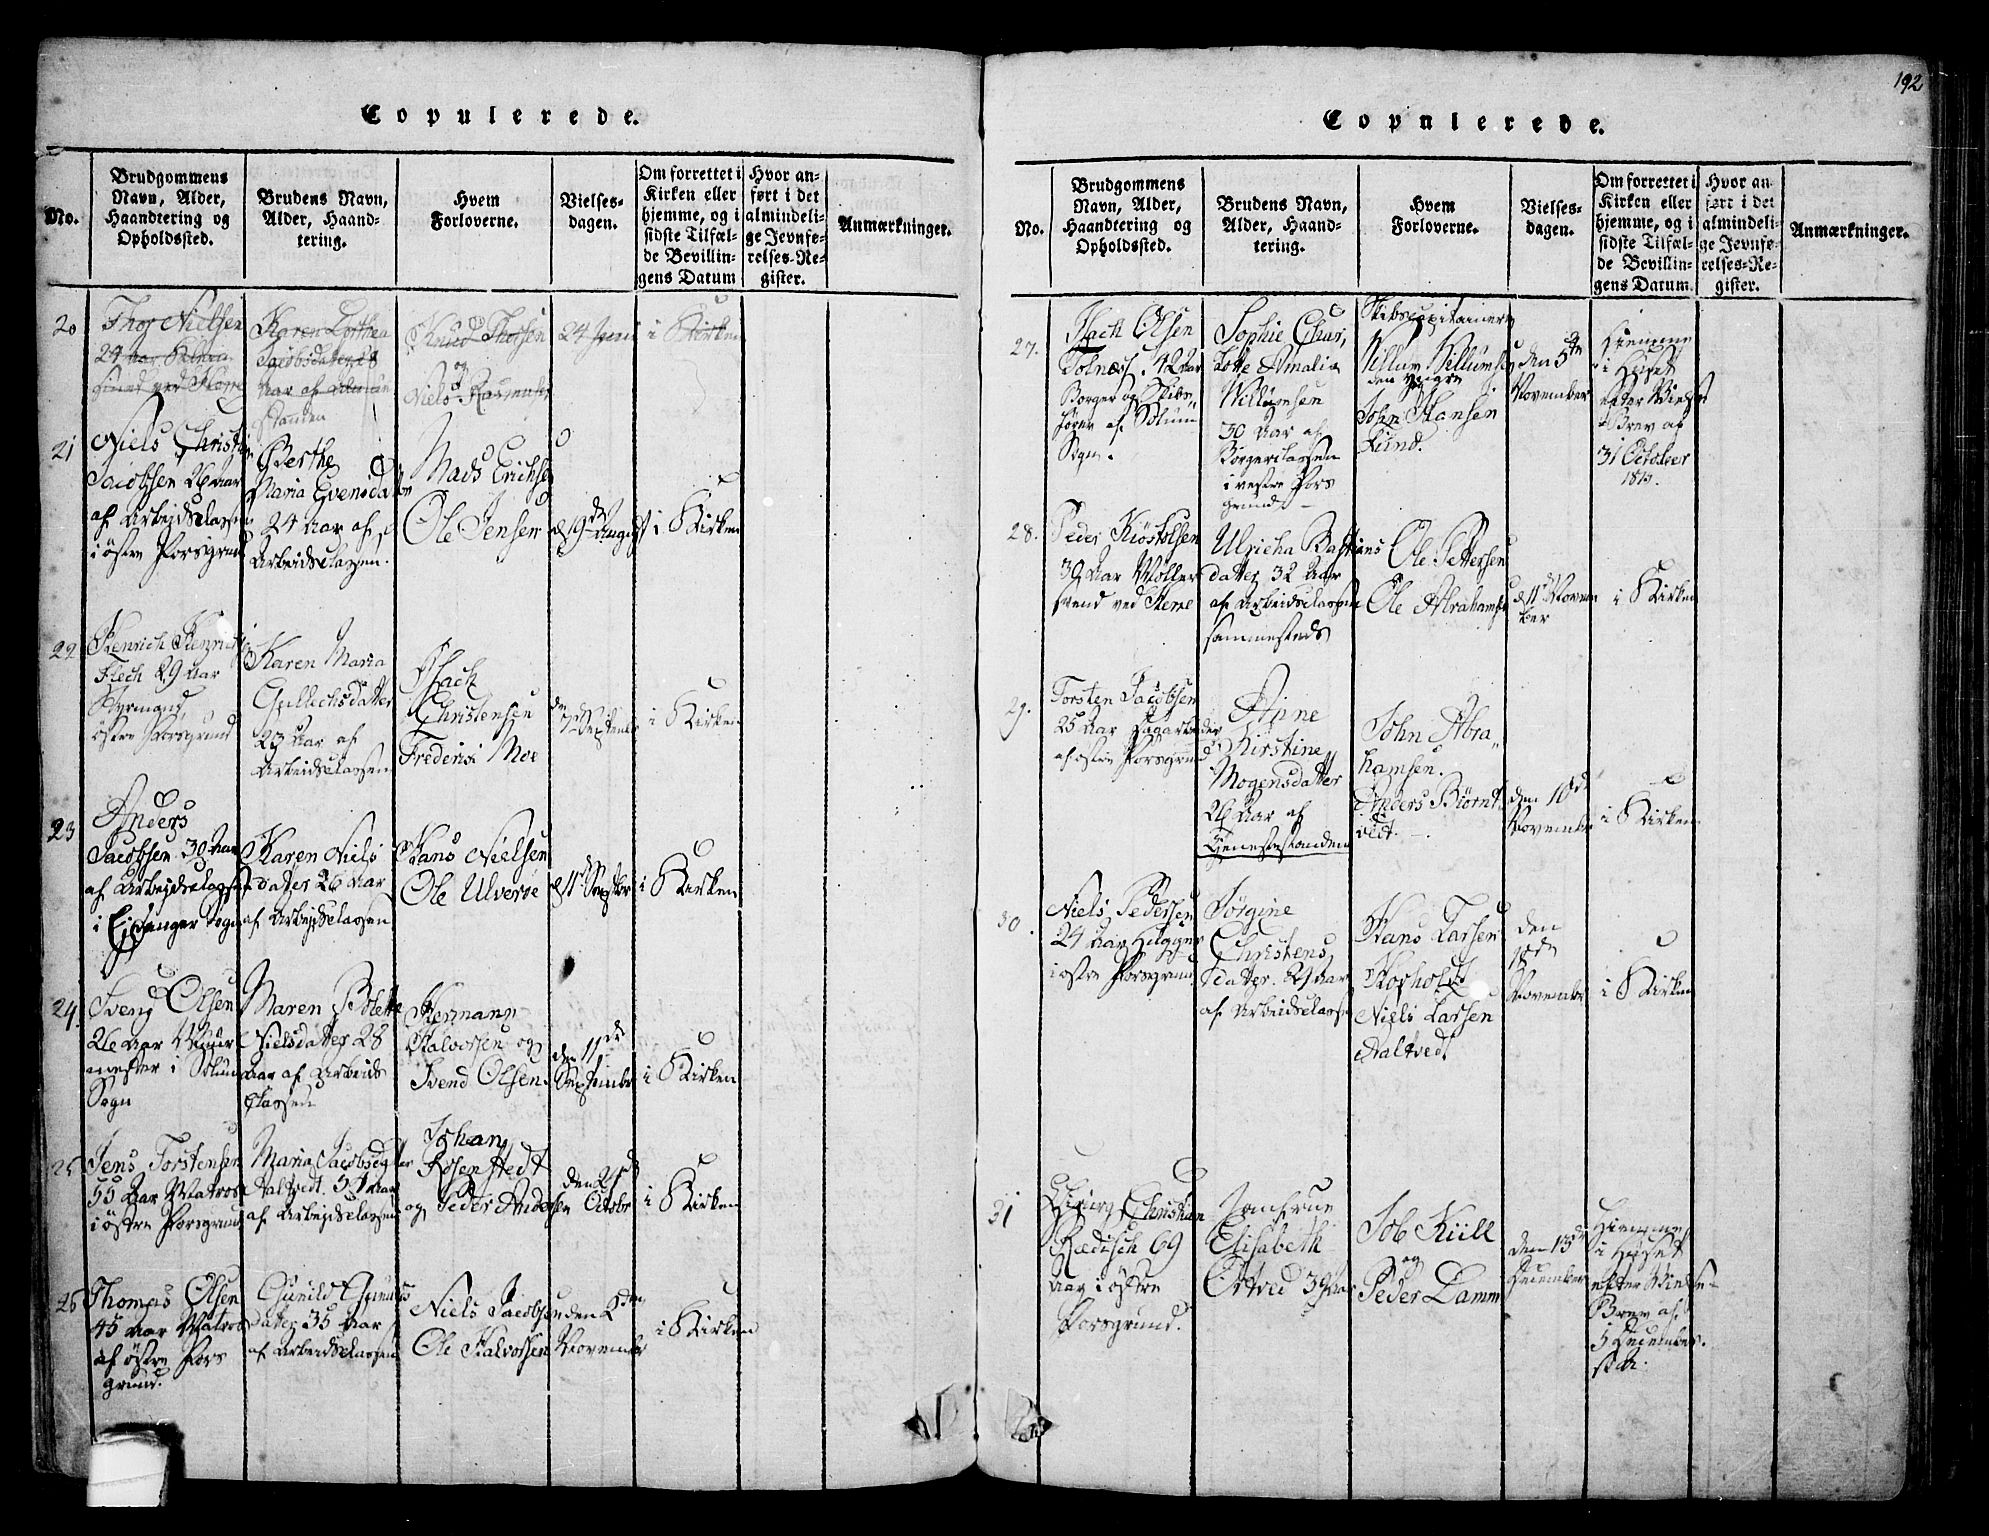 Copulerede.
No.
Brudgommens
Navn, Alder,
Haandtering og
Opholdssted.
Brudens Navn,
Alder, Haand-
tering.
Hvem
Forloverne.
Vielses-
dagen.
Om forrettet i
Kirken eller
hjemme, og i
sidste Tilfæl-
de Bevillin-
gens Datum
Hvor an-
ført i det
almindeli-
ge Jevnfø-
relses-Re-
gister.
Anmærkninger.
20
Thor Nielsen
24 Aar
Karen Dorthea
Jacobsdatter 28
Aar af
standen
Knud Thorsen
og
Niels Rasmussen
24 Juni
i Kirken
21
Niels Christian
Jacobsen 26 Aar
af Arbejdsclassen
i östre Porsgrund
Berthe
Maria Evensdatter
24 Aar af
Arbeidsclassen.
Mads Erichsen
Ole Jensen
d 19de August
i Kirken
22
Henrich Henrichsen
Flech 29 Aar
Styrmand,
östre Porsgrund
Karen Maria
Gullechsdatter
23 Aar af
Arbeidsclassen
Isach
Christensen
Frederik Moe
den
7de Septembr
i Kirken
23
Anders
Jacobsen 30 Aar
af Arbejdsclassen
i Eidanger Sogn
Karen Niels
datter 26 Aar
af Arbejdsclassen
Hans Nielsen
Ole Ulveröe
d 11te Septbr
i Kirken
24.
Svend Olsen
26 Aar Muur
mester i Solum
Sogn
Maren Bolette
Nielsdatter 28
Aar af Arbeids
classen
Hermann
Halvorsen og
Svend Olsen
den 11de
Septembr
i Kirken
25
Jens Torstensen
55 Aar Matros
i östre Porsgrund
Maria Jacobsdatter
Aaltvedt. 51 Aar
af Arbejdsclassen
Johan
Rosenstedt
og Peder Andersen
den 21de
Octobr
i Kirken
26
Thomas Olsen
45 Aar Matros
af östre Pors
grund.
Gunild Asmunds
datter 35 Aar
af Arbeidsclassen
Niels Jacobsen
Ole Halvorsen
den 2den
November
i Kirken
192
Copulerede.
No.
Brudgommens
Navn, Alder,
Haandtering og
Opholdssted.
Brudens Navn,
Alder, Haand-
tering.
Hvem
Forloverne.
Vielses-
dagen.
Om forrettet i
Kirken eller
hjemme, og i
sidste Tilfæl-
de Bevillin-
gens Datum.
Hvor an-
ført i det
almindeli-
ge Jevnfø-
relses-Re-
gister.
Anmærkninger.
27.
Isach Olsen
Tolnæs. 42 Aar
Borger og Skibs
förer af Solum
Sogn.
Sophie Char,
lotte Amalia
Willumsen
30 Aar af
Borgerclassen
i vestre Pors
grund
Skibscapitainerne
Willum Willumsen
den yngre
John Hansen
Lund.
den 5te
November
hiemme
i Huset
efter Vielse
Brev af
31 October
28.
Peder Kiöstolsen
39 Aar Möller
svend ved Herre
Ulricha Bastians
datter 32 Aar
af Arbeidsclassen
sammesteds
Ole Pettersen
Ole Abrahamsen
d 11te Novem
ber
i Kirken
29.
Torsten Jacobsen
25 Aar Dagarbeider
af östre Porsgrund
Anne
Kirstine
Mogensdatter
26 Aar af
Tjenestestanden
John Abra,
hamsen.
Anders Biörnt,
vedt.
den 18de
November
i Kirken
30.
Niels Pedersen
24 Aar Hugger
i östre Porsgrund
Jörgine
Christens
datter. 21 Aar
af Arbeidsclassen
Hans Larsen
Korholdt
Niels Larsen
Aaltvedt
den
18de
November
i Kirken
31
Georg Christian
Rædisch 69
Aar i östre
Porsgrund.
Jomfrue
Elisabeth
Ortved 39 Aar
Job Küll
og
Peder Lamm
den 15de
December
Hiemme
i Huset
efter Vielse-
Brev af
5 December.